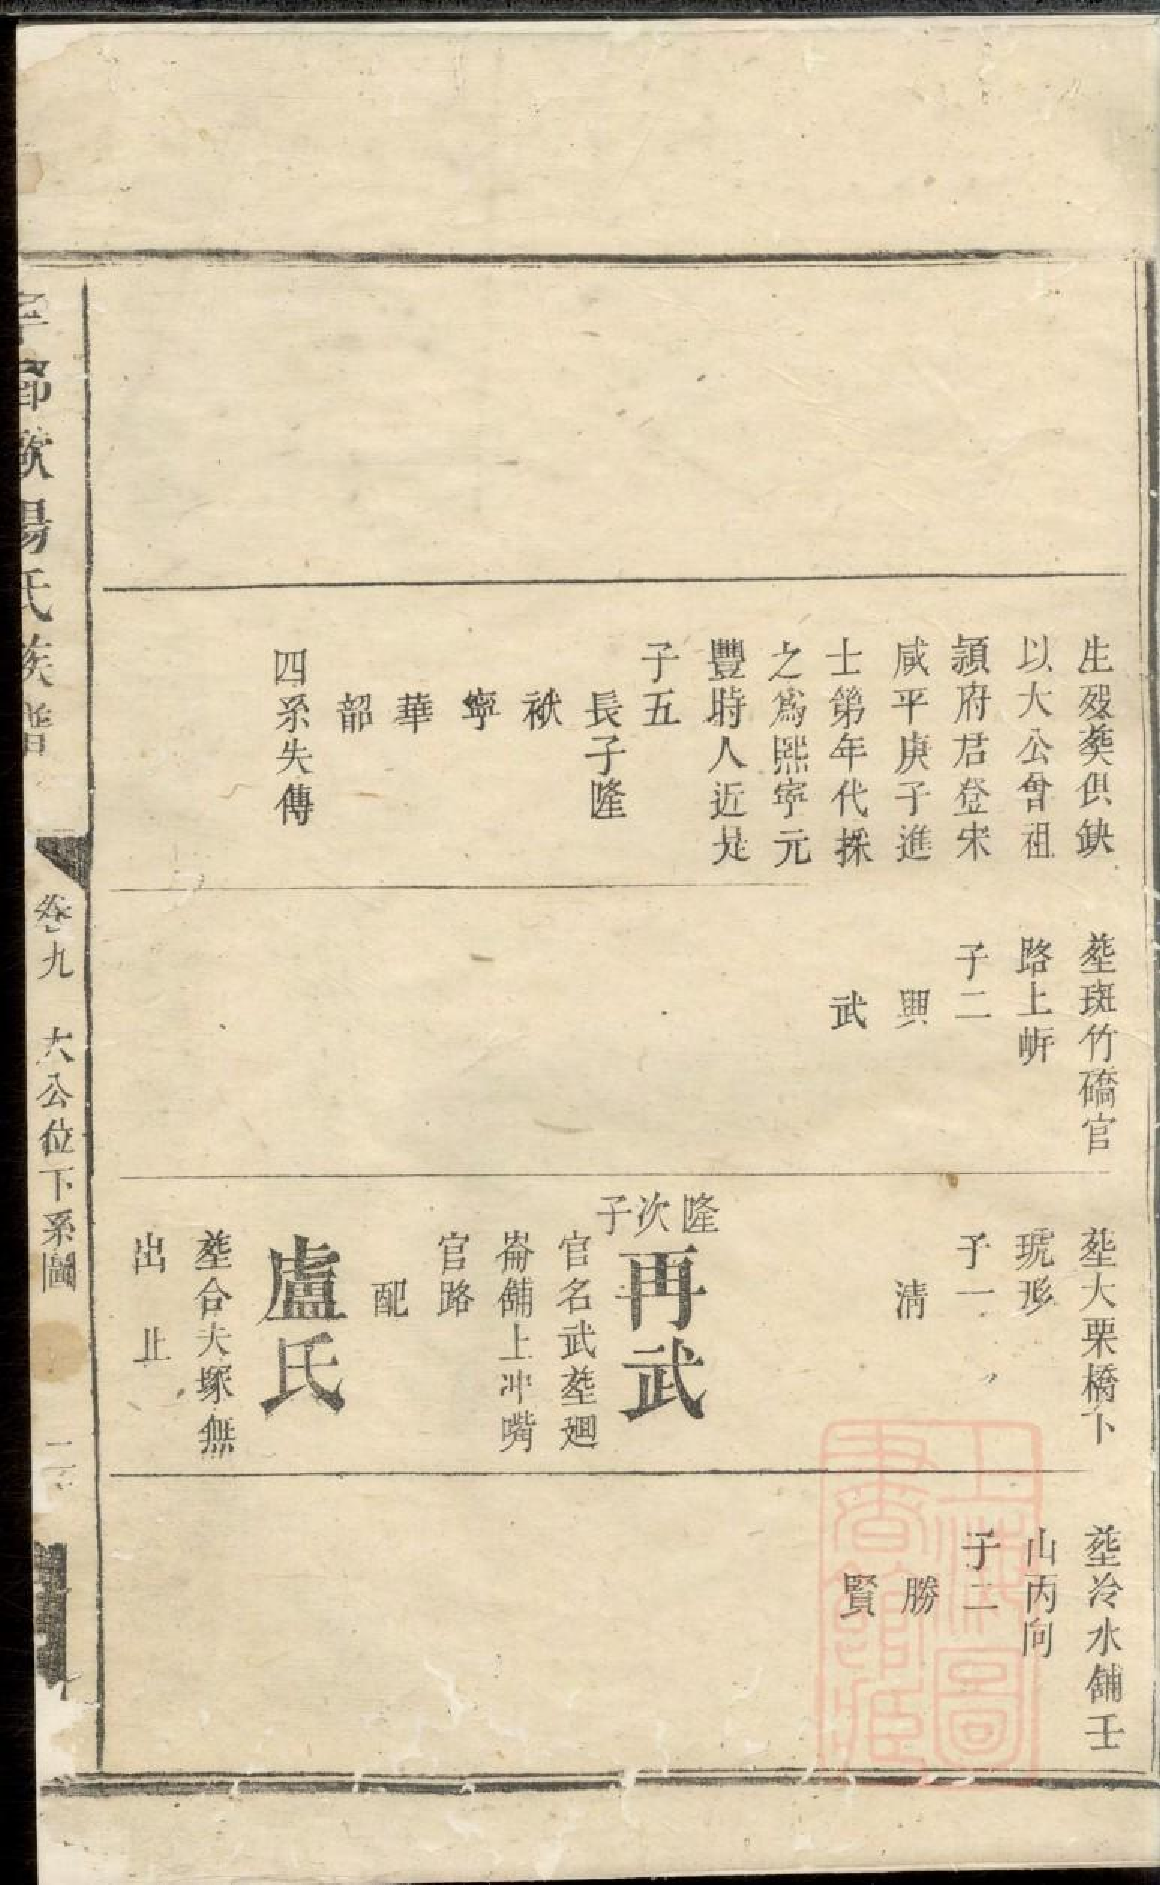 生殁葵俱缺
以大公曾祖
頴府君登宋
咸平庚子進
士第年代採
之為熙寧元
豐時人近是
子五
長子隆
袱
寧
華
韶
四系失傳
塟斑竹礄官
路上㟁
子二
興
武
塟大栗橋下
琥形
子一
清
隆次子
再武
官名武塟廻
崙舖上冲嘴
官路
配
盧氏
塟合夫塚無
出 止
塟冷水舖壬
山丙向
子二
勝
賢
上海圖書館藏
鄉歐陽氏族譜
卷九 大公位下系圖